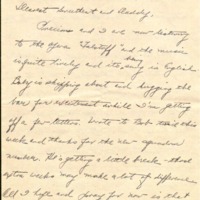 Dearest Sweetheart and Daddy,
and I are now listening
to the opera "Falstaff" and the music
is quite lovely and it's sung in English
Baby is skipping about and hugging the
for excitement while I'm getting
off a few letters. Wrote to Bob this
week and thanks for the new squadron
number. He's getting a little break - those
extra weeks may make a lot of difference.
All I hope and pray for now is that